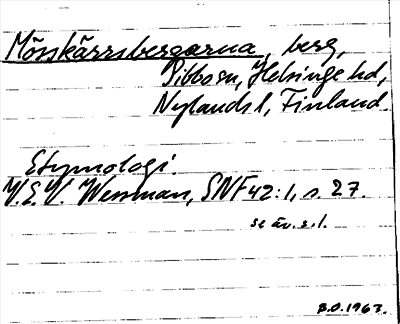 Mösskärrsbergarna, berg,
Sibbo sn, Helsinge hd,
Nylands l, Finland.
Etymologi.
V.E.V. Wessman, SNF 42:1, s. 27.
se äv. s. 1.
B.O. 1967.